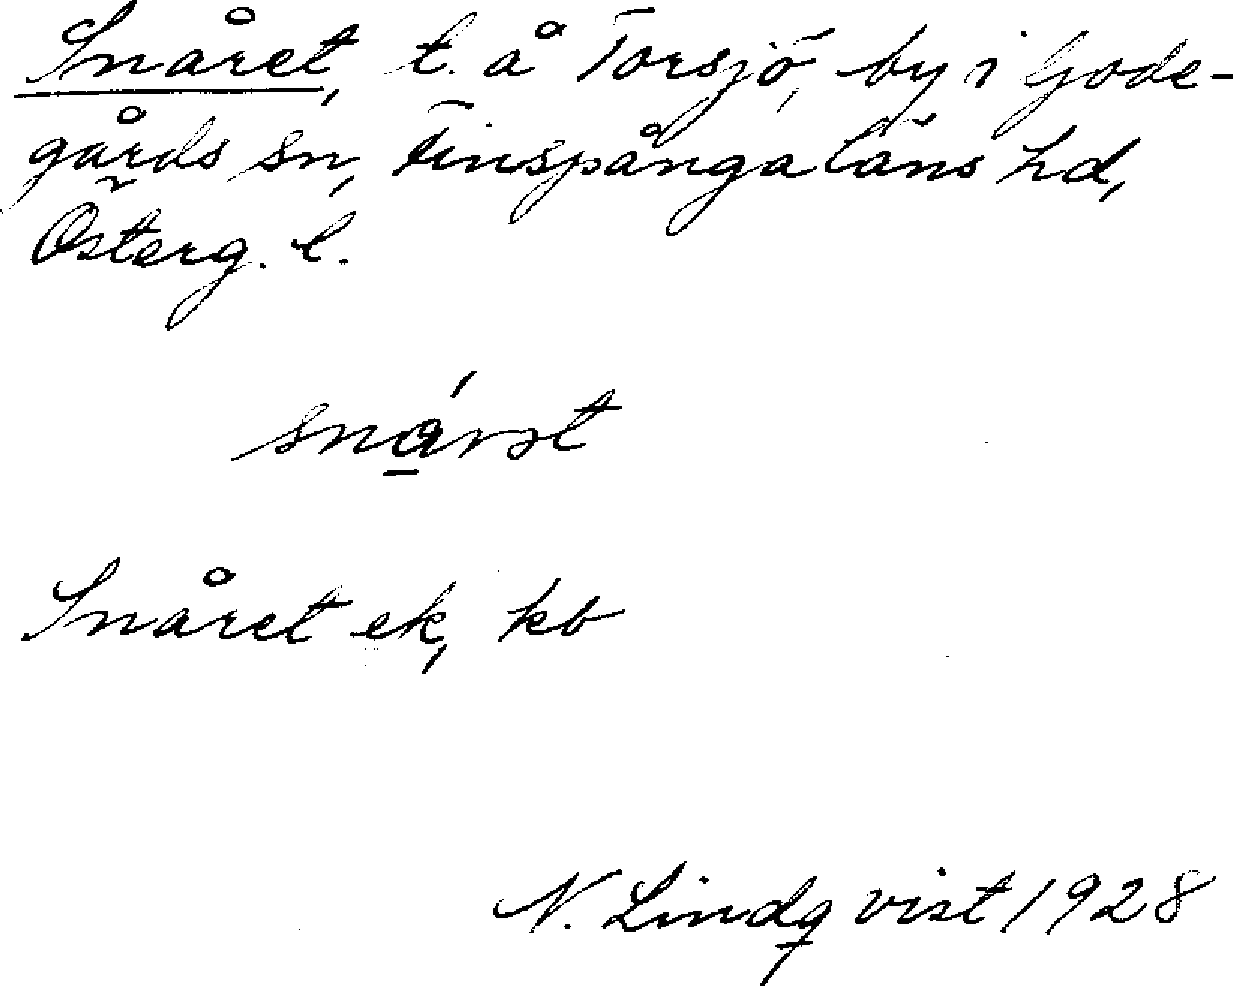 Snåret, t. å Torsjö, by i Gode-
gårds sn, Finspånga läns hd,
Österg. l.
snǻ̱rət
Snåret ek, kb
N. Lindqvist 1928